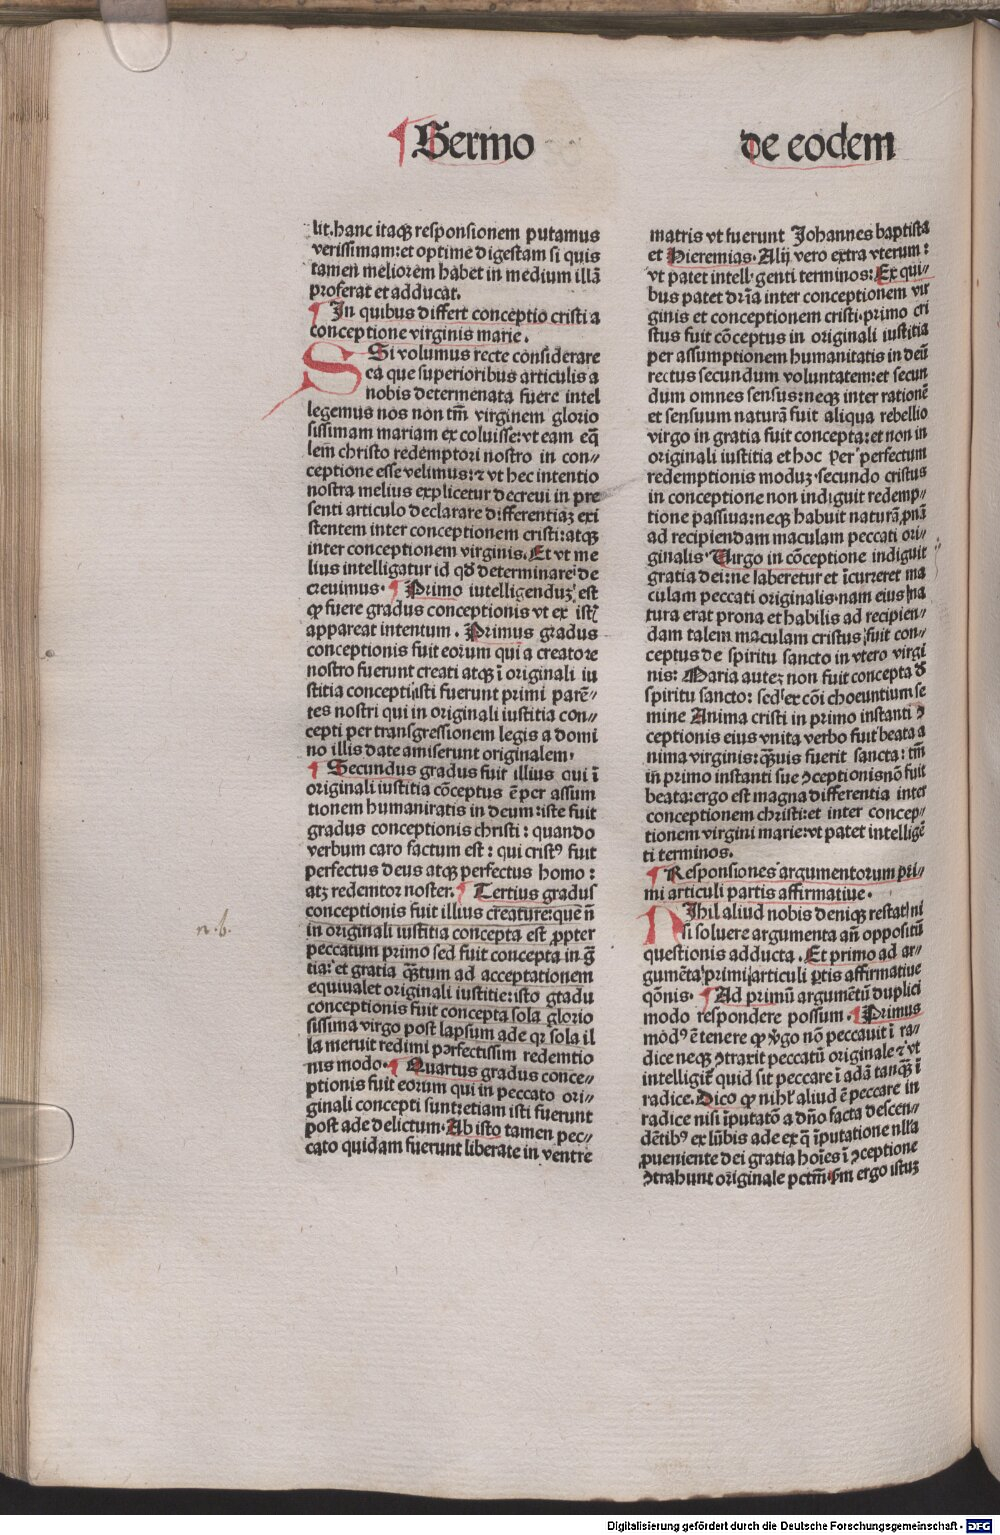 ¶ Sermo
de eodem
lit. hanc itaqꝫ responsionem putamus
verissimam: et optime digestam si quis
tamen meliorem habet in medium illā
proferat et adducat.
¶ In quibus differt conceptio cristi a
conceptione virginis marie.
Si volumus recte considerare
ea que superioribus articulis a
nobis determenata fuere intel
legemus nos non tm̄ virginem glorio
sissimam mariam ex coluisse: vt eam eq̄
lem christo redemptori nostro in con⸗
ceptione esse velimus: ⁊ vt hec intentio
nostra melius explicetur decreui in pre
senti articulo declarare differentiaꝫ exi
stentem inter conceptionem cristi: atqꝫ
inter conceptionem virginis. Et vt me
lius intelligatur id qd̄ determinare de
creuimus. ¶ Primo iutelligenduꝫ est
ꝙ fuere gradus conceptionis vt ex istꝭ
appareat intentum. Primus gradus
conceptionis fuit eorum qui a creatore
nostro fuerunt creati atqꝫ ī originali iu
stitia concepti: isti fuerunt primi parē⸗
tes nostri qui in originali iustitia con⸗
cepti per transgressionem legis a domi
no illis date amiserunt originalem.
¶ Secundus gradus fuit illius qui ī
originali iustitia cōceptus ē per assum
tionem humaniratis in deum: iste fuit
gradus conceptionis christi: quando
verbum caro factum est: qui cristꝰ fuit
perfectus deus atqꝫ perfectus homo:
atꝫ redemtor noster. ¶ Tertius gradus
conceptionis fuit illius creature: que n̄
in originali iustitia concepta est ꝓpter
peccatum primo sed fuit concepta in gr̄a
tia: et gratia qꝫtum ad acceptationem
equiualet originali iustitie: isto gtadu
conceptionis fuit concepta sola glorio
sissima virgo post lapsum ade qꝛ sola il
la meruit redimi perfectissim redemtio
nis modo. ¶ Quartus gradus conce⸗
ptionis fuit eorum qui in peccato ori⸗
ginali concepti sunt: etiam isti fuerunt
post ade delictum. Ab isto tamen pec⸗
cato quidam fuerunt liberate in ventre
n. b.
matris vt fuerunt Johannes baptista
et Hieremias. Alij vero extra vterum:
vt patet intelligenti terminos: Ex qui⸗
bus patet dr̄ia inter conceptionem vir
ginis et conceptionem cristi. primo cri
stus fuit cōceptus in originali iustitia
per assumptionem humanitatis in deū
rectus secundum voluntatem: et secun
dum omnes sensus: neqꝫ inter rationē
et sensuum naturā fuit aliqua rebellio
virgo in gratia fuit concepta: et non in
originali iustitia et hoc per perfectum
redemptionis moduꝫ. secundo cristus
in conceptione non indiguit redemp⸗
tione passiua: neqꝫ habuit naturā ꝓnā
ad recipiendam maculam peccati ori⸗
ginalis. Virgo in cōceptione indiguit
gratia dei: ne laberetur et īcurreret ma
culam peccati originalis. nam eius na
tura erat prona et habilis ad recipien⸗
dam talem maculam cristus fuit con⸗
ceptus de spiritu sancto in vtero virgi
nis: Maria auteꝫ non fuit concepta d̄
spiritu sancto: sed ex cōi choeuntium se
mine Anima cristi in primo instanti ꝯ
ceptionis eius vnita verbo fuit beata a
nima virginis: qꝫuis fuerit sancta: tm̄
in primo instanti sue ꝯceptionis nō fuit
beata: ergo est magna differentia inter
conceptionem christi: et inter concep⸗
tionem virgini marie: vt patet intelligē
ti terminos.
¶ Responsiones argumentorum pri⸗
mi articuli partis affirmatiue.
Nihil aliud nobis deniqꝫ restat ni
si soluere argumenta an̄ oppositū
questionis adducta. Et primo ad ar⸗
gumēta primi articuli ꝑtis affirmatiue
qōnis. ¶ Ad primū argumētū duplici
modo respondere possum. ¶ Primus
modꝰ ē tenere ꝙ v̓go nō peccauit ī ra⸗
dice neqꝫ ꝯtraxit peccatū originale ⁊ vt
intelligit̄ quid sit peccare ī adā tanqꝫ ī
radice. Dico ꝙ nihl̓ aliud ē peccare in
radice nisi īputatō a dn̄o facta descen⸗
dētibꝰ ex lūbis ade ex q̄ īputatione nlla
ꝓueniente dei gratia hoīes ī ꝯceptione
ꝯtrahunt originale pctm̄. sm̄ ergo istuꝫ
Digitalisierung gefördert durch die Deutsche Forschungsgemeinschaft - DFG